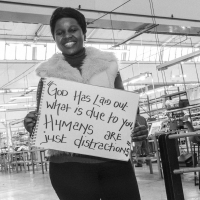 "GOD HAS LAID OUT
WHAT IS DUE TO YOU
HUMENS ARE
JUST DISTRACTIONS"